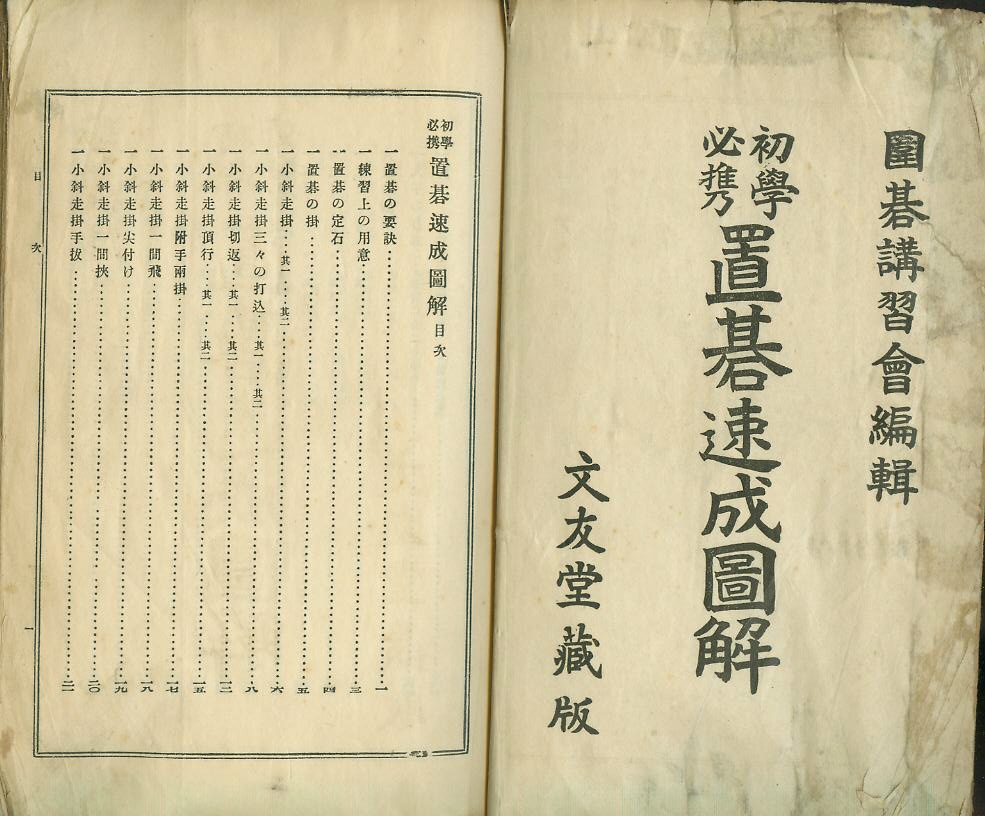 圍碁講習會編輯
初學必携 置碁速成圖解
文友堂藏版
初學必携 置碁速成圖解目次
一置碁の要訣……一
一練習上の用意……三
一置碁の定石……四
一置碁の掛……五
一小斜走掛…其一…其二……六
一小斜走掛三々の打込…其一…其二……八
一小斜走掛切返…其一…其二……一二
一小斜走掛頂行…其一…其二……一五
一小斜走掛附手兩掛……一七
一小斜走掛一間飛……一八
一小斜走掛尖付け……一九
一小斜走掛一間挾……二〇
一小斜走掛手拔……二一
目次
一